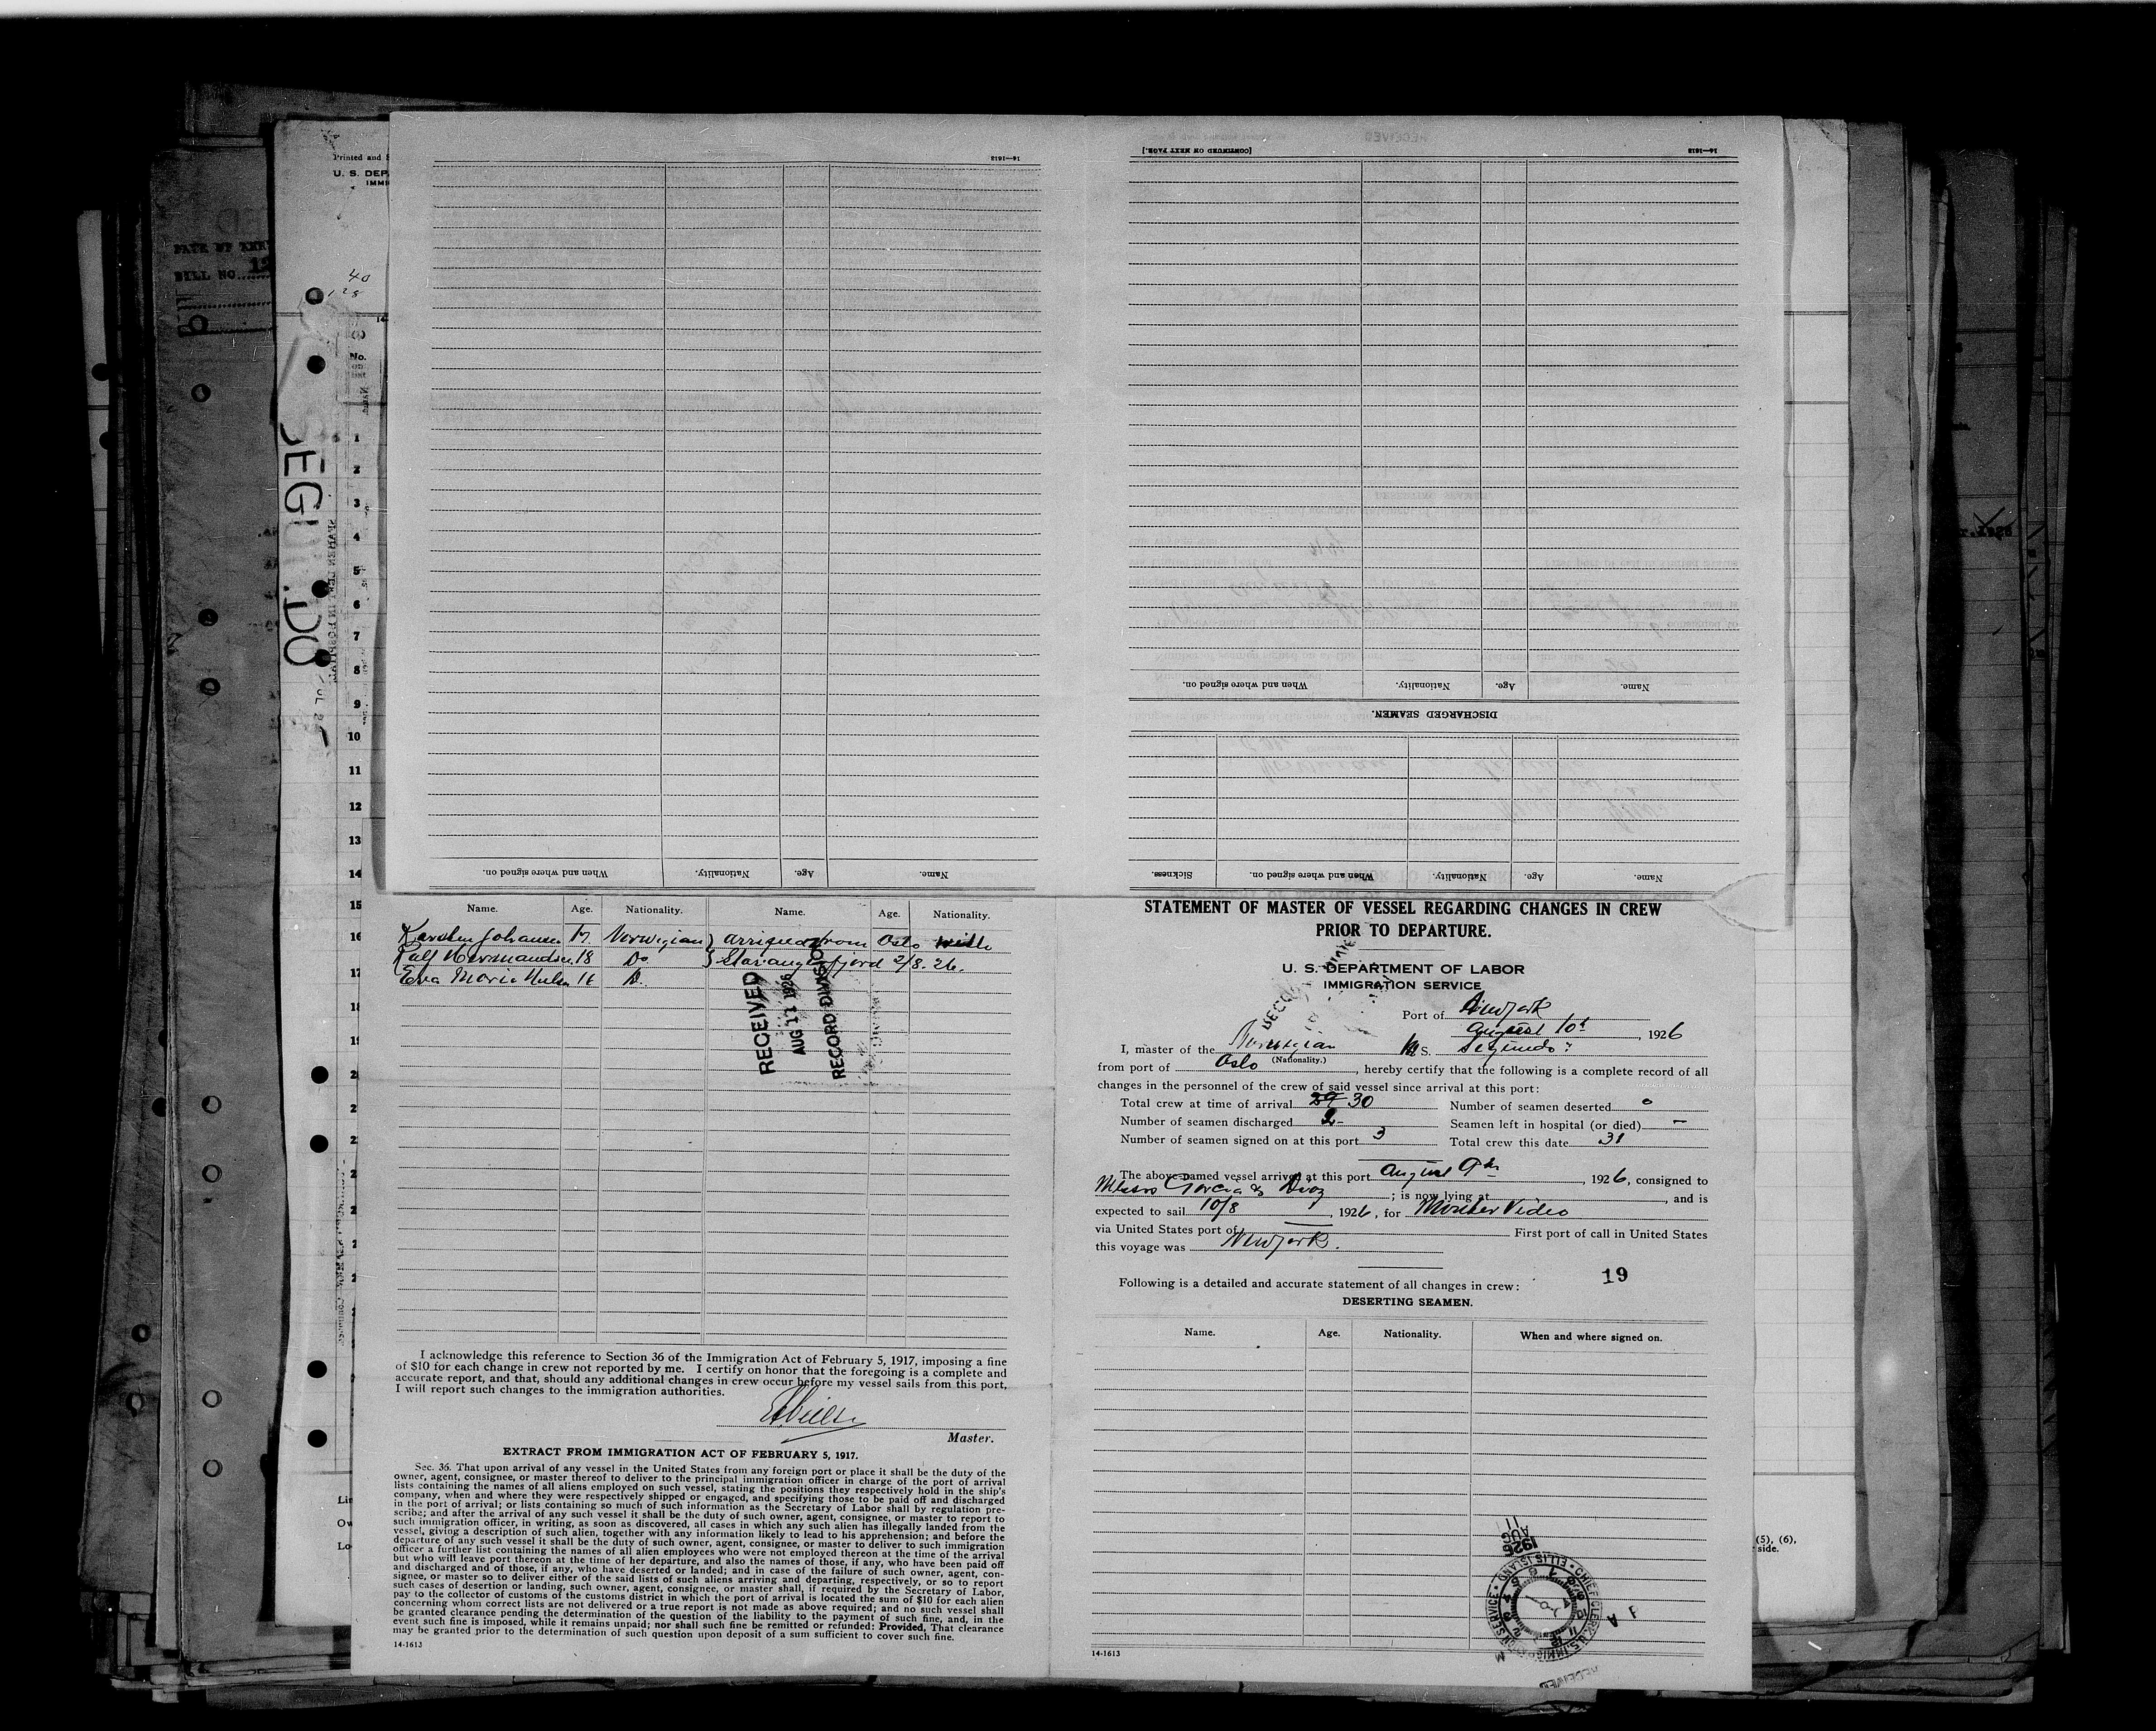 Printed and
U. S. DEP
IMMI
BILL NO.
40
No.
1
2
3
4
5
6
7
8
9
10
11
12
13
14
15
16
17
18
14-1613
Name. Age. Nationality. When and where signed on.
[CONTINUED ON NEXT PAGE.]
14-1613
Name. Age. Nationality. When and where signed on.
DISCHARGED SEAMEN.
Name. Age. Nationality. When and where signed on. Sickness.
Name. Age. Nationality. Name. Age. Nationality.
Karsten Johansen 17. Norwegian } arrived from Oslo with
18 Do } Stavangerfjord 2/8. 26.
Eva Marie 16 D.
RECEIVED
AUG 11 1926
RECORD DIVISION
I acknowledge this reference to Section 36 of the Immigration Act of February 5, 1917, imposing a fine
of $10 for each change in crew not reported by me. I certify on honor that the foregoing is a complete and
accurate report, and that, should any additional changes in crew occur before my vessel sails from this port,
I will report such changes to the immigration authorities.
Master.
EXTRACT FROM IMMIGRATION ACT OF FEBRUARY 5, 1917.
Sec. 36. That upon arrival of any vessel in the United States from any foreign port or place it shall be the duty of the
owner, agent, consignee, or master thereof to deliver to the principal immigration officer in charge of the port of arrival
lists containing the names of all aliens employed on such vessel, stating the positions they respectively hold in the ship's
company, when and where they were respectively shipped or engaged, and specifying those to be paid off and discharged
in the port of arrival; or lists containing so much of such information as the Secretary of Labor shall by regulation pre-
scribe; and after the arrival of any such vessel it shall be the duty of such owner, agent, consignee, or master to report to
such immigration officer, in writing, as soon as discovered, all cases in which any such alien has illegally landed from the
vessel, giving a description of such alien, together with any information likely to lead to his apprehension; and before the
departure of any such vessel it shall be the duty of such owner, agent, consignee, or master to deliver to such immigration
officer a further list containing the names of all alien employees who were not employed thereon at the time of the arrival
but who will leave port thereon at the time of her departure, and also the names of those, if any, who have been paid off
and discharged and of those, if any, who have deserted or landed; and in case of the failure of such owner, agent, con-
signee, or master so to deliver either of the said lists of such aliens arriving and departing, respectively, or so to report
such cases of desertion or landing, such owner, agent, consignee, or master shall, if required by the Secretary of Labor,
pay to the collector of customs of the customs district in which the port of arrival is located the sum of $10 for each alien
concerning whom correct lists are not delivered or a true report is not made as above required; and no such vessel shall
be granted clearance pending the determination of the question of the liability to the payment of such fine, and, in the
event such fine is imposed, while it remains unpaid; nor shall such fine be remitted or refunded: Provided, That clearance
may be granted prior to the determination of such question upon deposit of a sum sufficient to cover such fine.
14-1613
STATEMENT OF MASTER OF VESSEL REGARDING CHANGES IN CREW
PRIOR TO DEPARTURE.
U. S. DEPARTMENT OF LABOR
IMMIGRATION SERVICE
Port of New York
August 10th, 1926
I, master of the Norwegian M S. Segundo
(Nationality.)
from port of Oslo, hereby certify that the following is a complete record of all
changes in the personnel of the crew of said vessel since arrival at this port:
Total crew at time of arrival 29 30 Number of seamen deserted 0
Number of seamen discharged 2- Seamen left in hospital (or died) -
Number of seamen signed on at this port 3 Total crew this date 31
The above-named vessel arrived at this port August 9th, 1926, consigned to
Messrs Garcia & Diaz; is now lying at , and is
expected to sail 10/8, 1926, for Montevideo
via United States port of — First port of call in United States
this voyage was New York.
19
Following is a detailed and accurate statement of all changes in crew:
DESERTING SEAMEN.
Name. Age. Nationality. When and where signed on.
1926
AUG
11
CHIEF CLERK, U.S. IMMIGRATION SERVICE • ELLIS ISLAND
RECEIVED
14-1613
(5), (6),
side.